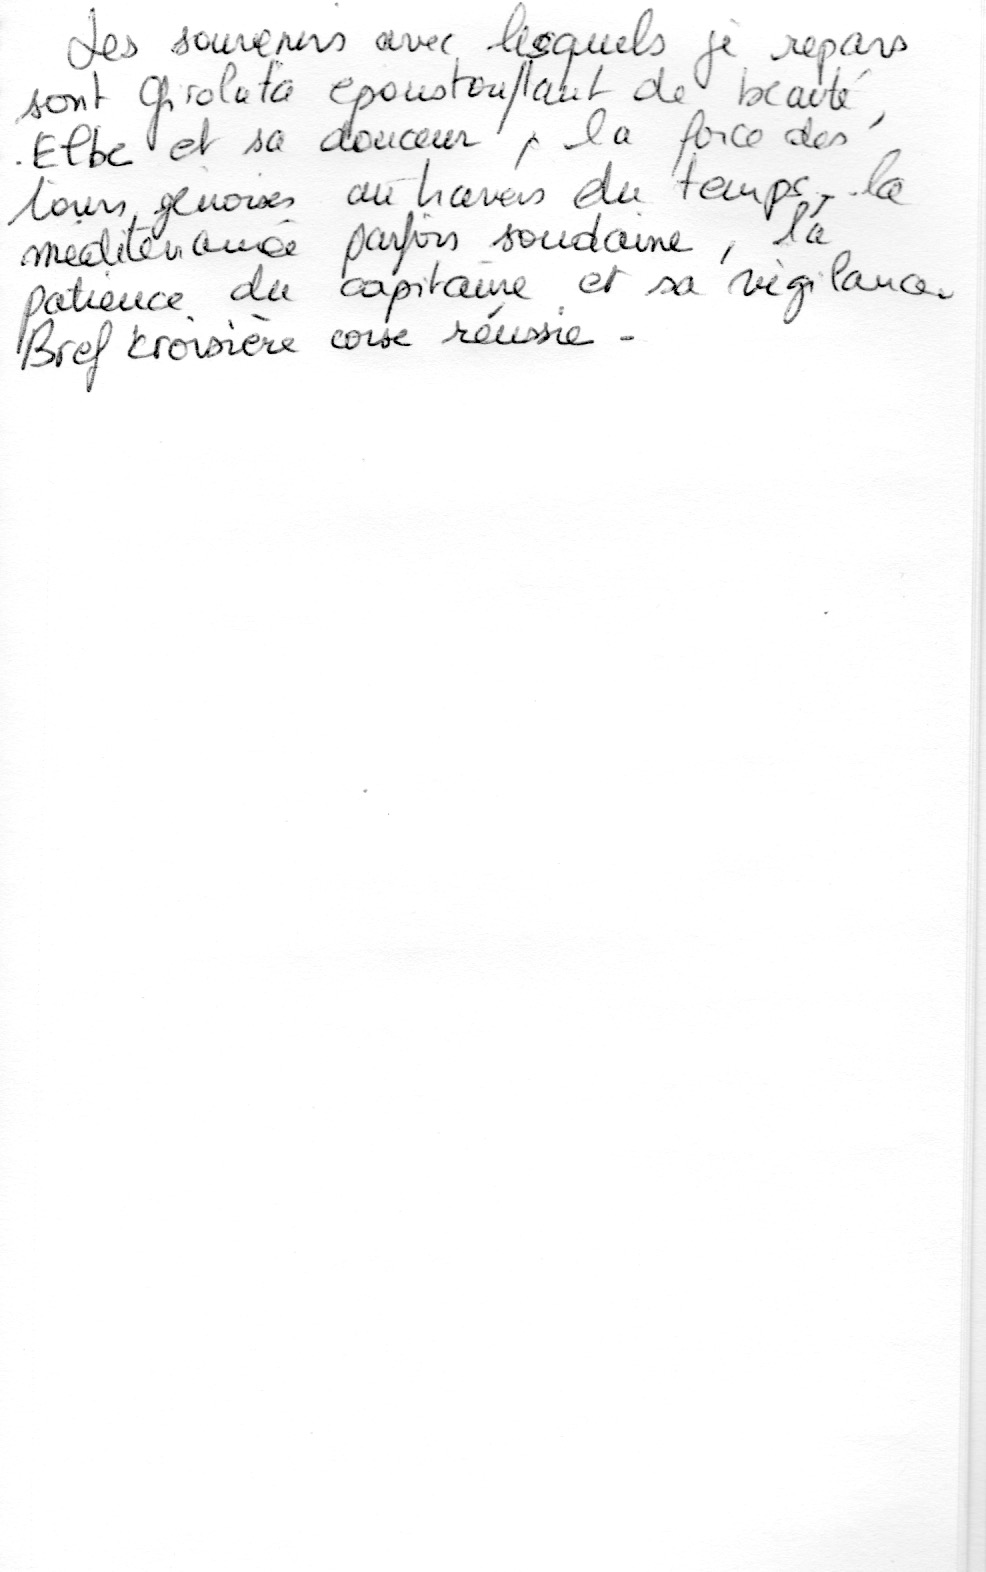 Les souvenirs avec lesquels je repars
sont Ghirolata epoustouflant de beauté,
Elbe et sa douceur, la force des
tours génoises au travers du temps, la
méditérranée parfois soudaine, la
patience du capitaine et sa vigilance.
Bref Kroisière corse réussie -